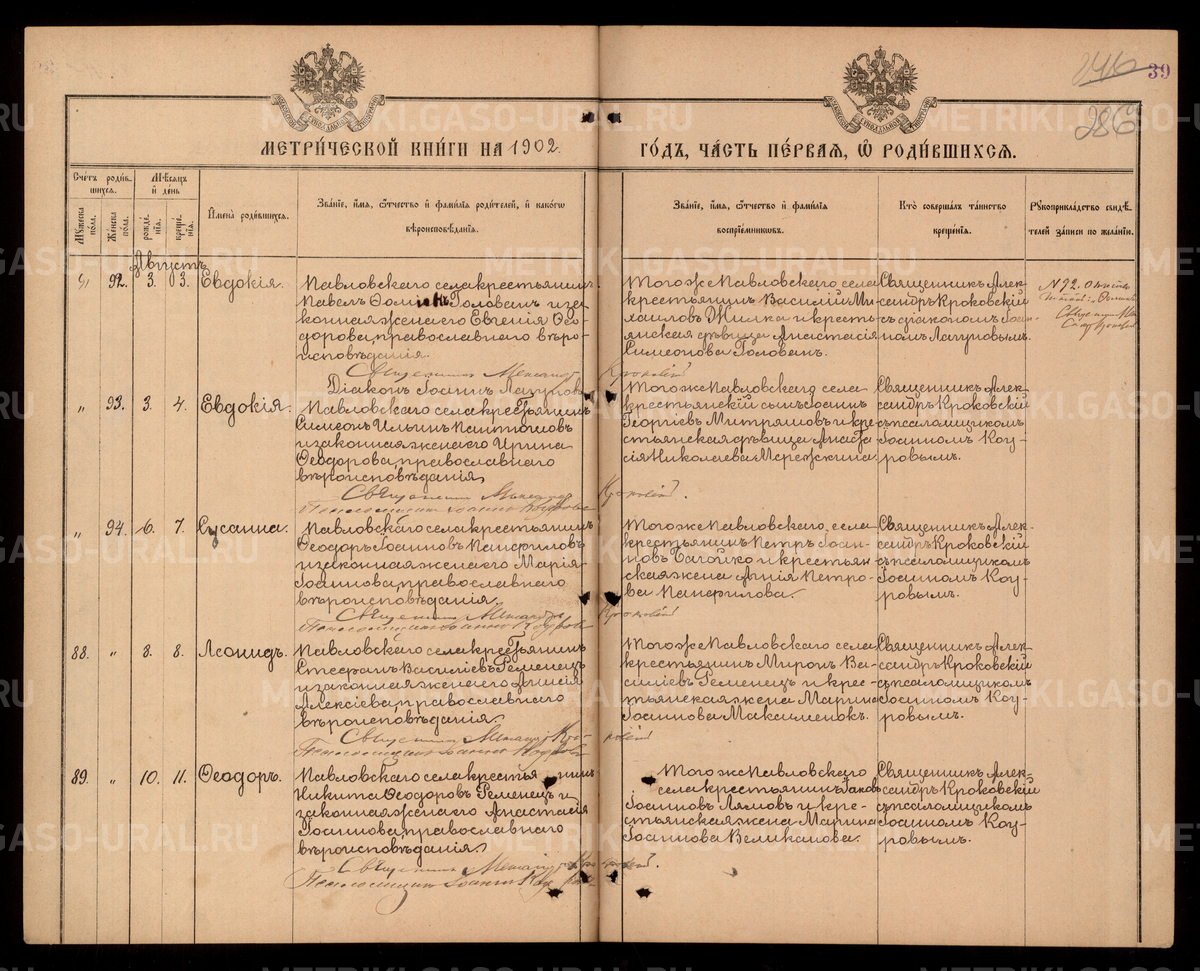 246 39
286
МЕТРИ́ЧЕСКОЙ КНИ́ГИ НА 1902.
ГО́ДЪ, ЧА́СТЬ ПЕ́РВАЯ, Ѽ РОДИ́ВШИХСѦ.
Сче́тъ роди́в-
шихсѧ.
Мѣ́сѧцъ
и҆ де́нь
Мꙋ́жеска по́ла.
Же́нска по́ла.
рожде́-
нїѧ.
креще́-
нїѧ.
И҆мена̀ роди́вшихсѧ.
Зва́нїе, и҆́мѧ, ѻ҆́тчество и҆ фами́лїѧ роди́телей, и҆ како́гѡ
вѣроисповѣ́данїѧ.
Зва́нїе, и҆́мѧ, ѻ҆́тчество и҆ фами́лїѧ
воспрїе́мникѡвъ.
Кто̀ соверша́лъ та́инство
креще́нїѧ.
Рꙋкоприкла́дство свидѣ́-
телей за́писи по жела́нїю.
Августъ
" 92. 3. 3. Евдокія.
Павловскаго села крестьянинъ
Павелъ Ѳоминъ Голованъ и за-
конная жена его Евгенія Ѳео-
дорова, православнаго вѣро-
исповѣданія.
Священникъ Александръ Кроковскій
Діаконъ Іоаннъ Лагуновъ
Того же Павловскаго села
крестьянинъ Василій Ми-
хаиловъ Жилка и кресть-
янская дѣвица Анастасія
Симеонова Голованъ.
Священникъ Алек-
сандръ Кроковскій
съ діакономъ Іоан-
номъ Лагуновымъ.
" 93. 3. 4. Евдокія.
Павловскаго села крестьянинъ
Симеонъ Ильинъ Пантюшовъ
и законная жена его Ирина
Ѳеодорова, православнаго
вѣроисповѣданія.
Священникъ Александръ Кроковскій.
Псаломщикъ Іоаннъ Коуровъ
Того же Павловскаго села
крестьянскій сынъ Іоаннъ
Георгіевъ Митряшовъ и кре-
стьянская дѣвица Анаста-
сія Николаева Мережкина.
Священникъ Алек-
сандръ Кроковскій
съ псаломщикомъ
Іоанномъ Коу-
ровымъ.
" 94. 6. 7. Сусанна.
Павловскаго села крестьянинъ
Ѳеодоръ Іоанновъ Панфиловъ
и законная жена его Марія
Іоаннова, православнаго
вѣроисповѣданія.
Священникъ Александръ Кроковскій
Псаломщикъ Іоаннъ Коуровъ
Того же Павловскаго села
крестьянинъ Петръ Іоан-
новъ и крестьян-
ская жена Анна Петро-
ва Панфилова.
Священникъ Алек-
сандръ Кроковскій
съ псаломщикомъ
Іоанномъ Коу-
ровымъ.
88. " 8. 8. Леонидъ.
Павловскаго села крестьянинъ
Стефанъ Василіевъ Ременецъ
и законная жена его Анисія
Алексіева, православнаго
вѣроисповѣданія.
Священникъ Александръ Кроковскій
Псаломщикъ Іоаннъ Коуровъ
Того же Павловскаго села
крестьянинъ Миронъ Ва-
силіевъ Ременецъ и крес-
тьянская жена Марина
Іоаннова Максименокъ.
Священникъ Алек-
сандръ Кроковскій
съ псаломщикомъ
Іоанномъ Коу-
ровымъ.
89. " 10. 11. Ѳеодоръ.
Павловскаго села крестьянинъ
Никита Ѳеодоровъ Ременецъ и
законная жена его Анастасія
Іоаннова, православнаго
вѣроисповѣданія.
Священникъ Александръ Кроковскій.
Псаломщикъ Іоаннъ Коуровъ
Того же Павловскаго
села крестьянинъ Іаковъ
Іоанновъ Лямовъ и кре-
стьянская жена Марина
Іоаннова Великанова.
Священникъ Алек-
сандръ Кроковскій
съ псаломщикомъ
Іоанномъ Коу-
ровымъ.
METRIKI.GASO-URAL.RU